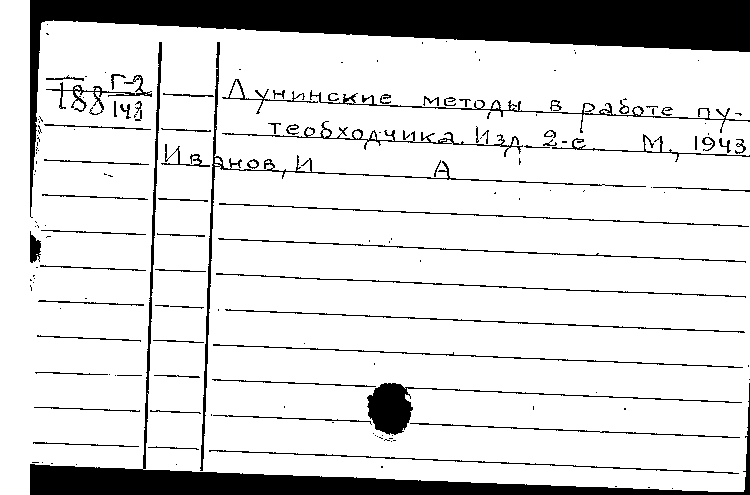 Г-2
188 148
Лунинские методы в работе пу-
теобходчика. Изд. 2-е М., 1943
Иванов, И А